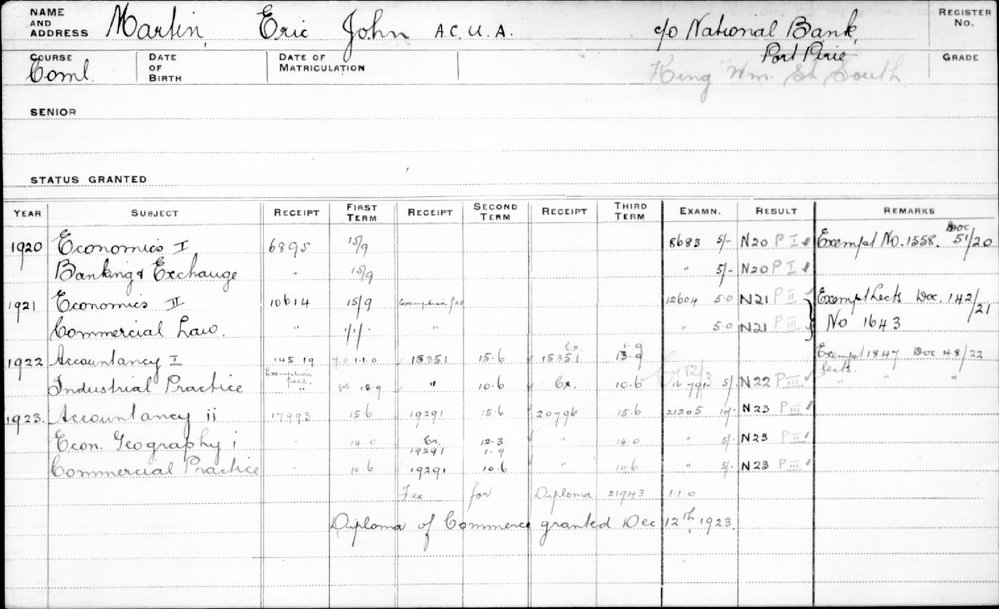 NAME AND ADDRESS Martin, Eric John A.C.U.A. c/o National Bank, REGISTER No.
Port Pirie
COURSE Coml. DATE OF BIRTH DATE OF MATRICULATION King Wm. St. South GRADE
SENIOR
STATUS GRANTED
YEAR SUBJECT RECEIPT FIRST TERM RECEIPT SECOND TERM RECEIPT THIRD TERM EXAMN. RESULT REMARKS
1920 Economics I 6895 15/9 8683 5/- N20 P I Exempt No. 1558. Doc 51/20
Banking & Exchange " 15/9 " 5/- N20 P I
1921 Economics II 10614 15/9 Exemption fee 12604 5.0 N21 P II Exempt Lects Doc. 142/21
Commercial Law. " " " " 5.0 N21 P III No 1643
1922 Accountancy I 14519 1.1.0 15351 15.6 Ex. 15351 1.9 13.9 Exempt 1847 Doc 48/22
Industrial Practice Exemption fect. " 15.9 " 10.6 Ex. 10.6 16791 5/- N22 P III Lects. " " "
1923. Accountancy ii 17993 15.6 19291 15.6 20796 15.6 21205 N23 P III
Econ. Geography i " 14.0 Ex. 19291 12.3 1.9 " 14.0 " 5/- N23 P II
Commercial Practice " 10.6 19291 10.6 " 10.6 " 5/- N23 P III
Fee for Diploma 21943 1.1.0
Diploma of Commerce granted Dec 12th 1923.